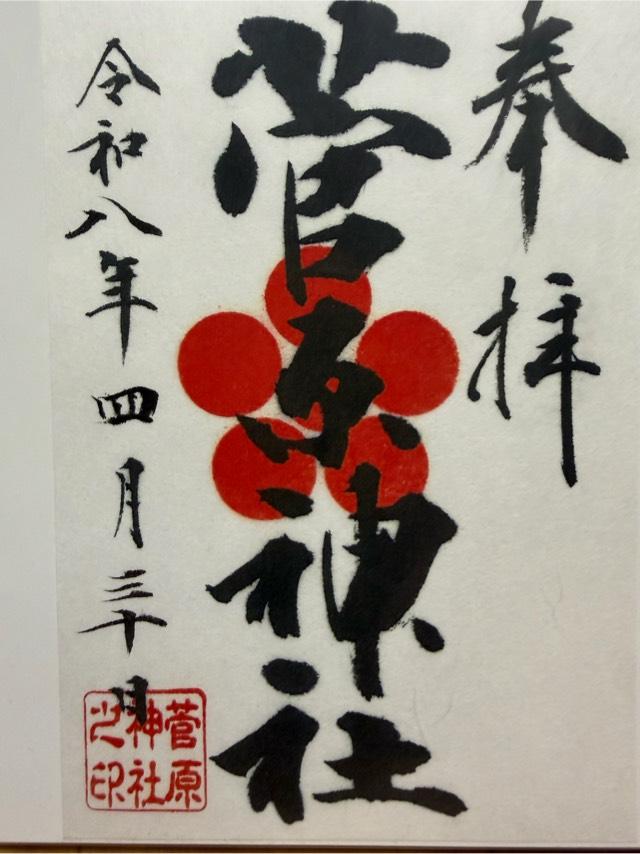 奉拝
菅原神社
令和八年四月三十日
菅原
神社
之印